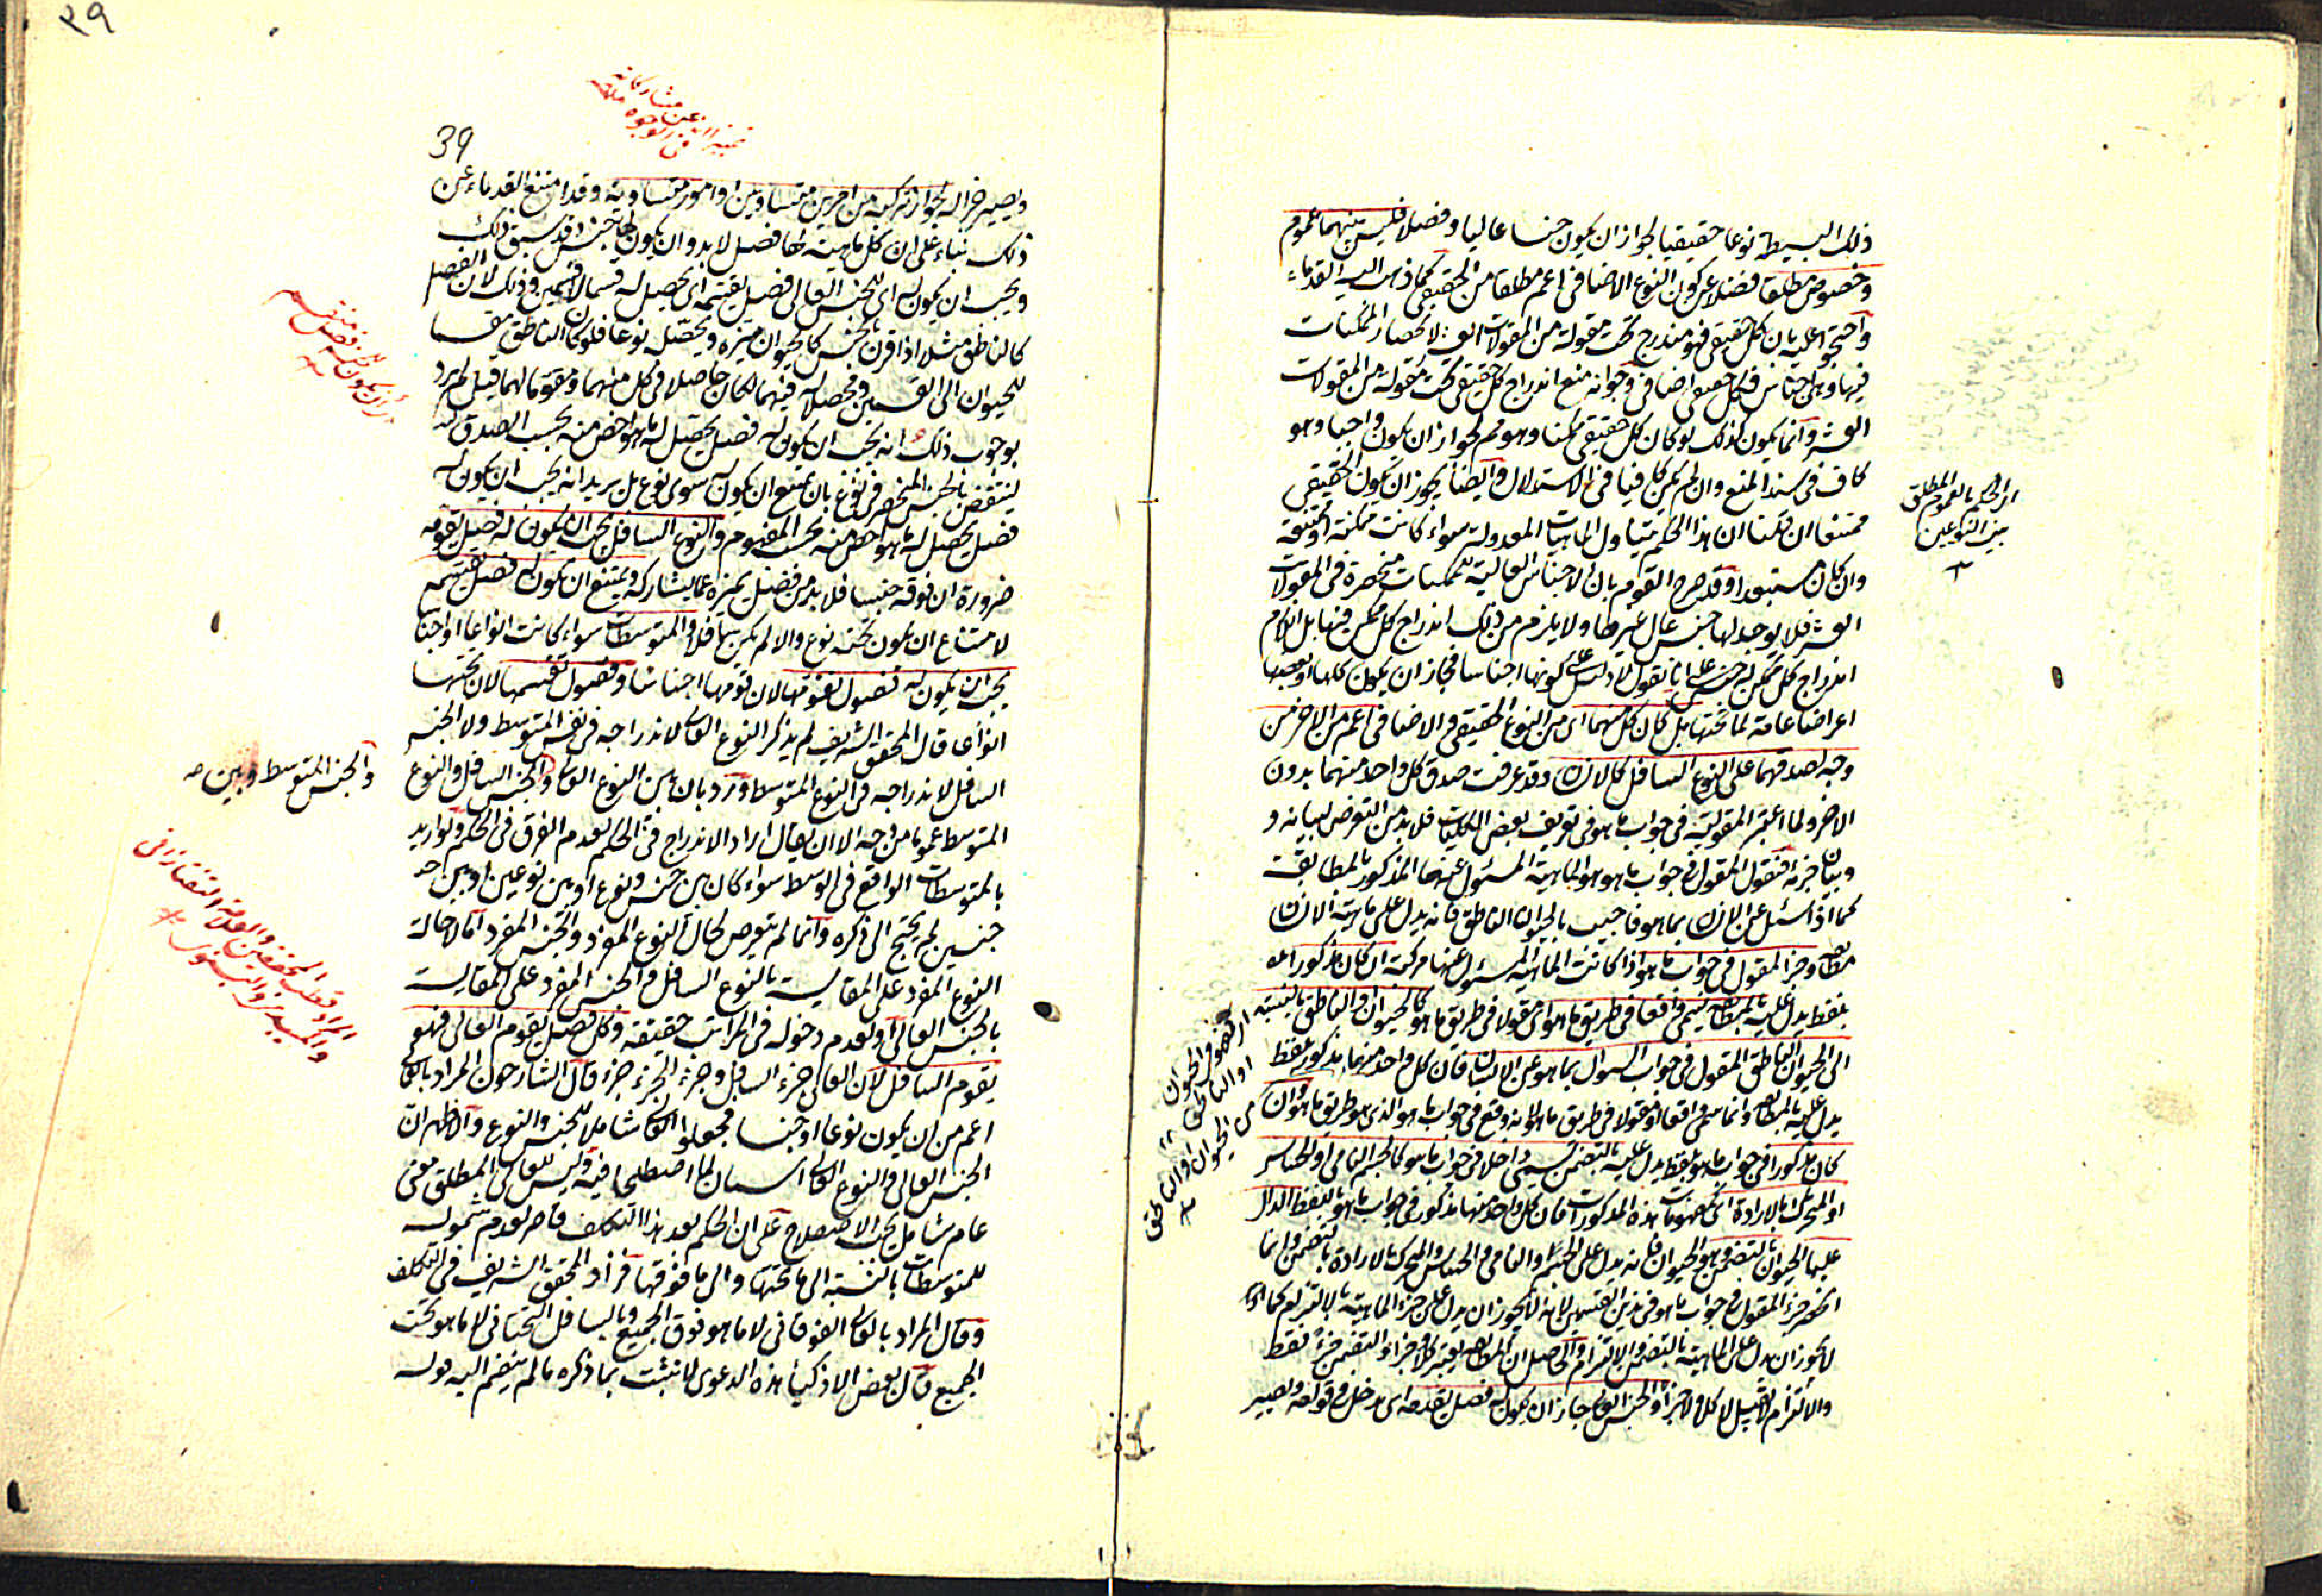 ذلك البسيطة نوعا حقيقيا لجواز ان يكون جنسا عاليا او فصلا فليس بينهما عموم
وخصوص مطلقا فضلا عن كون النوع الاضافى اعم مطلقا من الحقيقى كما ذهب اليه القدماء
واحتجوا عليه بان كل حقيقى فهو مندرج تحت مقولة من المقولات العشر لانحصار الممكنات
فيها وهى اجناس فكل حقيقى اضافى وجوابه منع اندراج كل حقيقى تحت مقولة من المقولات
العشر وانما يكون كذلك لو كان كل حقيقى ممكنا وهو مم لجواز ان يكون واجبا وهو
كاف فى سند المنع وان لم يكن كافيا فى الاستدلال وايضا يجوز ان يكون الحقيقى
ممتنعا ان قلنا ان هذا الحكم يتناول الماهيات المعدولة سواء كانت ممكنة او ممتنعة
وان كان مستبعدا وقد صرح القوم بان الاجناس العالية للممكنات منحصرة فى المقولات
العشر فلا يوجد لها جنس عال غيرها ولا يلزم من ذلك اندراج كل ممكن فيها بل اللازم
اندراج كل ممكن له جنس على انا نقول لا دليل على كونها اجناسا فجاز ان يكون كلها او بعضها
اعراضا عامة لما تحتها بل كان كل منهما اى من النوع الحقيقى والاضافى اعم من الاخر من
وجه لصدقهما على النوع السافل كالانسان وقد عرفت صدق كل واحد منهما بدون
الاخر ولما اعتبر المقولية فى جواب ما هو فى تعريف بعض الكليات فلا بد من التعرض لبيانه و
وبيان جزئه فنقول المقول فى جواب ما هو هو الماهية المسئول عنها المذكور بالمطابقة
كما اذا سئل عن الانسان بما هو فاجيب بالحيوان الناطق فانه يدل على ماهية الانسان
مطابقة وجزء المقول فى جواب ما هو اذا كانت الماهية المسئول عنها مركبة ان كان مذكورا
بلفظ يدل عليه بالمطابقة يسمى واقعا فى طريق ما هو اى مقولا فى طريق ما هو كالحيوان او الناطق بالنسبة
الى الحيوان الناطق المقول فى جواب السؤال بما هو عن الانسان فان كل واحد منهما مذكور بلفظ
يدل عليه بالمطابقة وانما سمى واقعا او مقولا فى طريق ما هو لانه وقع فى جواب ما هو الذى هو طريق ما هو وان
كان مذكورا فى جواب ما هو بلفظ يدل عليه بالتضمن يسمى داخلا فى جواب ما هو كالجسم النامى او الحساس
او المتحرك بالارادة اى كمفهومات هذه المذكورات فان كل واحد منها مذكور فى جواب ما هو بلفظ الدال
عليها الحيوان بالتضمن وهو الحيوان فانه يدل على الجسم والنامى والحساس والمتحرك بالارادة بالتضمن وانما
انحصر جزء المقول فى جواب ما هو فى هذين القسمين لانه لا يجوز ان يدل على جزء الماهية بالالتزام كما
لا يجوز ان يدل على الماهية بالتضمن والالتزام والحاصل ان المطابقة يعتبر كلا وجزءا والتضمن جزءا فقط
والالتزام لا يقبل لا كلا ولا جزءا والجنس العالى جاز ان يكون له فصل يقومه اى يدخل فى قوامه ويصير
اى الحكم بالعموم المطلق
بين النوعين
او الناطق
من الحيوان او الناطق
٣٩
39
تمييز الشئ عن مشاركاته
ويصير جزءا له لجواز تركبه من امرين متساويين او امور متساوية وقد امتنع القدماء عن
ذلك بناء على ان كل ماهية لها فصل لا بد وان يكون لها جنس وقد سبق ذلك
ويجب ان يكون له اى للجنس العالى فصل يقسمه اى يحصل له قسما لا قسمين وذلك لان الفصل
كالناطق مثلا اذا اقرن بجنس كالحيوان ميزه ويحصله نوعا فلو كان الناطق مقسما
للحيوان الى القسمين ومحصلا له فيهما لكان حاصلا فى كل منهما ومقوما لهما قيل لم يرد
بوجوب ذلك انه يجب ان يكون له فصل يحصل له ما هو اخص منه بحسب الصدق
لينتقض بالجنس المنحصر فى نوع بان يمتنع ان يكون له سوى نوع بل يريد انه يجب ان يكون له
فصل يحصل له ما هو اخص منه بحسب المفهوم والنوع السافل يجب ان يكون له فصل يقومه
ضرورة ان فوقه جنسا فلا بد من فصل يميزه عما يشاركه ويمتنع ان يكون له فصل يقسمه
لامتناع ان يكون تحته نوع والا لم يكن سافلا والمتوسطات سواء كانت انواعا او اجناسا
يجب ان يكون له فصول تقومها لان فوقها اجناسا وفصول تقسمها لان تحتها
انواعا قال المحقق الشريف لم يذكر النوع العالى لاندراجه فى الجنس المتوسط ولا الجنس
السافل لاندراجه فى النوع المتوسط ورد بان بين النوع العالى والجنس السافل والنوع
المتوسط عموما من وجه الا ان يقال اراد الاندراج فى الحكم لعدم الفرق فى الحكم ولو اريد
بالمتوسطات الواقع فى الوسط سواء كان بين جنس ونوع او بين نوعين او بين
جنسين لم يحتج الى ذكره وانما لم يتعرض لحال النوع المفرد والجنس المفرد اما لاحالة
النوع المفرد على المقايسة بالنوع السافل والجنس المفرد على المقايسة
بالجنس العالى او لعدم دخوله فى المراتب حقيقة وكل فصل يقوم العالى فهو
يقوم السافل لان العالى جزء السافل وجزء الجزء جزء قال الشارحون المراد بالعالى
اعم من ان يكون نوعا او جنسا فجعلوا العالى شاملا للجنس والنوع والاظهر ان
الجنس العالى والنوع العالى اسمان لما اصطلحا فيه وليس للعالى المطلق معنى
عام شامل بحسب الاصطلاح على ان الحكم بعد هذا التكلف قاصر لعدم شموله
للمتوسطات بالنسبة الى ما تحتها والى ما فوقها فزاد المحقق الشريف فى التكلف
وقال المراد بالعالى الفوقانى لا ما هو فوق الجميع وبالسافل التحتانى لا ما هو تحت
الجميع قال بعض الاذكياء هذه الدعوى لا تثبت بما ذكره ما لم ينضم اليه قوله
والجنس المتوسط وبين
المراد قطب المحققين والعلامة التفتازانى
والسيد